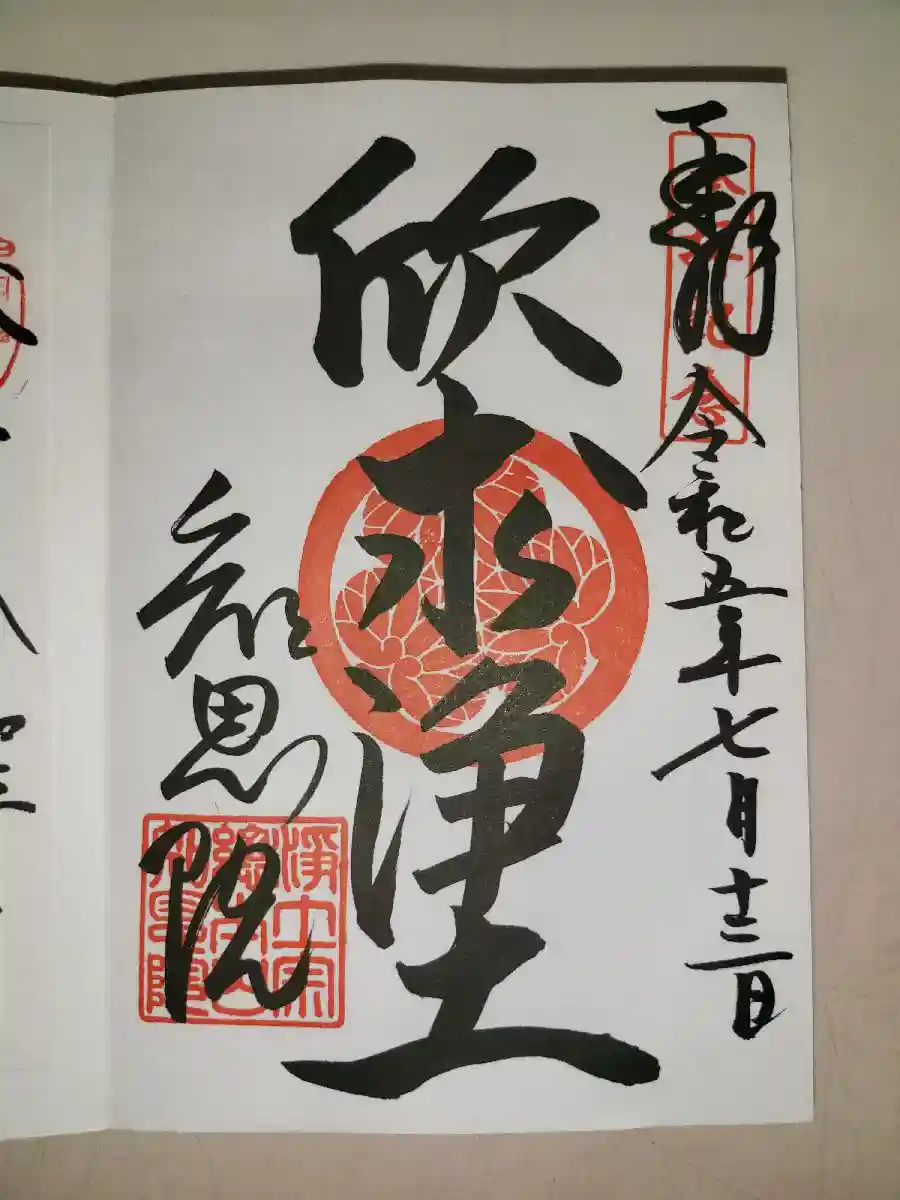 奉拝
令和五年七月十三日
参拝記念
欣求浄土
知恩院
淨土宗
總本山
知恩院